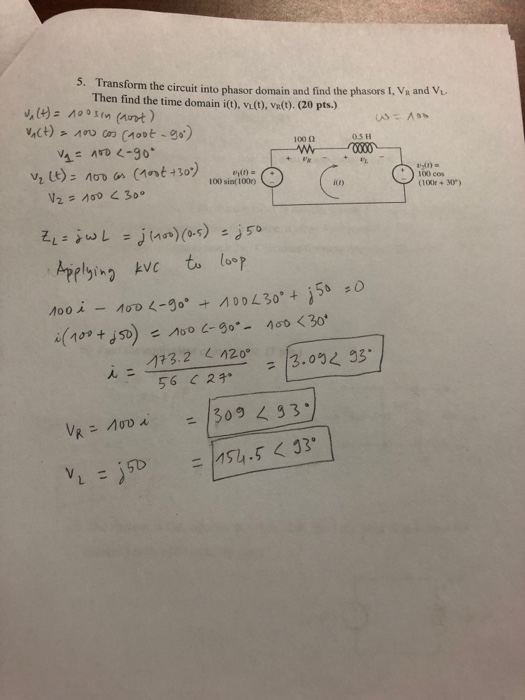 5. Transform the circuit into phasor domain and find the phasors I, VR and VL.
Then find the time domain i(t), vL(t), vR(t). (20 pts.)
v1(t) = 100 sin (100t)
v1(t) = 100 cos (100t - 90°)
V1 = 100 <-90°
v2(t) = 100 cos (100t + 30°)
V2 = 100 < 30°
ω = 100
100 Ω
0.5 H
+ vR - + vL -
v1(t) =
100 sin(100t)
i(t)
v2(t) =
100 cos
(100t + 30°)
ZL = jωL = j(100)(0.5) = j50
Applying KVC to loop
100 i - 100 <-90° + 100<30° + j50 = 0
i(100 + j50) = 100 <-90° - 100 <30°
i = 173.2 < 120° / 56 < 27° = 3.09< 93°
VR = 100 i = 309 < 93°
VL = j50 = 154.5 < 93°